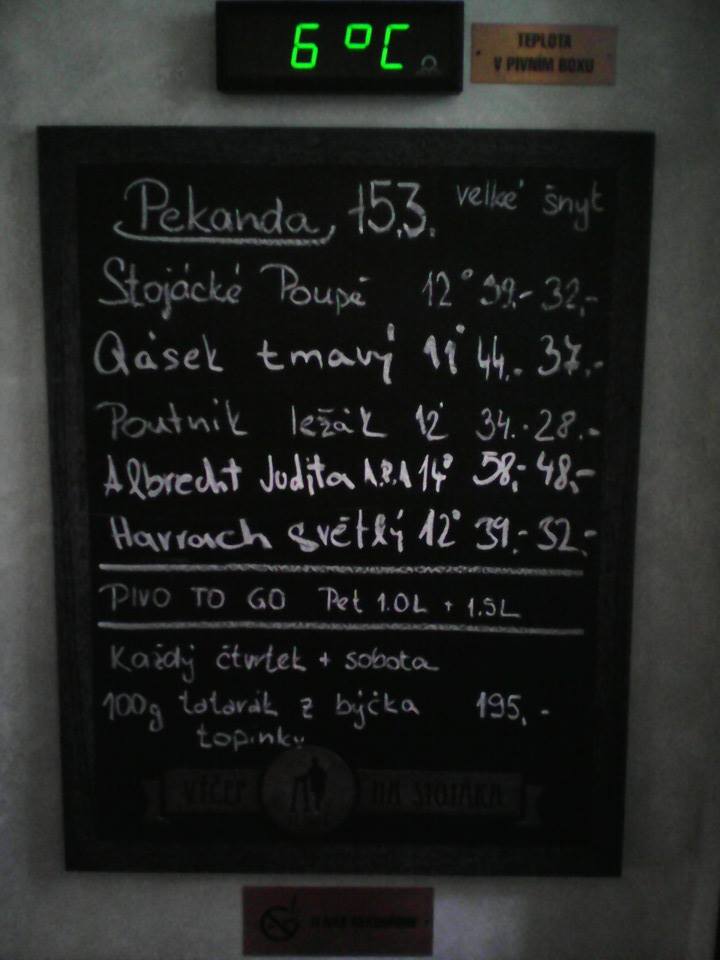 6 °C
TEPLOTA
V PIVNÍM BOXU
Pekanda 15.3. velké šnyt
Stojácké Poupě 12° 39,- 32,-
Qásek tmavý 11° 44,- 37,-
Poutník ležák 12° 34,- 28,-
Albrecht Judita A.P.A 14° 58,- 48,-
Harrach světlý 12° 39,- 32,-
PIVO TO GO Pet 1.0L + 1.5L
Každý čtvrtek + sobota
100g tatarák z býčka 195,-
topinky
VÝČEP NA STOJÁKA